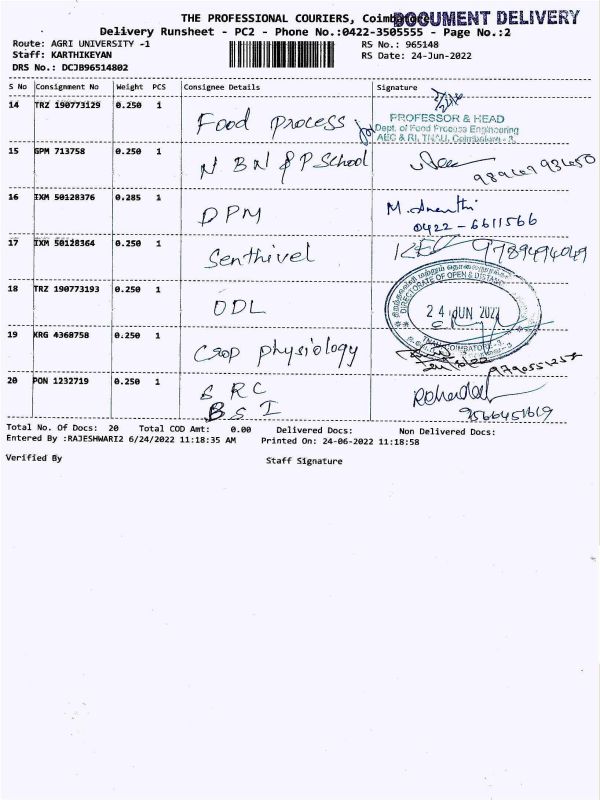 THE PROFESSIONAL COURIERS, Coimbatore
DOCUMENT DELIVERY
Delivery Runsheet - PC2 - Phone No.:0422-3505555 - Page No.:2
Route: AGRI UNIVERSITY -1
RS No.: 965148
Staff: KARTHIKEYAN
RS Date: 24-Jun-2022
DRS No.: DCJB96514802
S No Consignment No Weight PCS Consignee Details Signature
14 TRZ 190773129 0.250 1 Food process
PROFESSOR & HEAD
Dept. of Food Process Engineering
AEC & RI, TNAU, Coimbatore - 3.
15 GPM 713758 0.250 1 N B N & P School
16 IXM 50128376 0.285 1 DPM M. Ananthi
0422-6611566
17 IXM 50128364 0.250 1 Senthivel 9789494049
18 TRZ 190773193 0.250 1 ODL
DIRECTORATE OF OPEN & DISTANCE
24 JUN 2022
TNAU, COIMBATORE-3.
19 KRG 4368758 0.250 1 Crop physiology
9790551257
20 PON 1232719 0.250 1 S R C
B S I
9566451619
Total No. Of Docs: 20 Total COD Amt: 0.00 Delivered Docs: Non Delivered Docs:
Entered By :RAJESHWARI2 6/24/2022 11:18:35 AM Printed On: 24-06-2022 11:18:58
Verified By Staff Signature